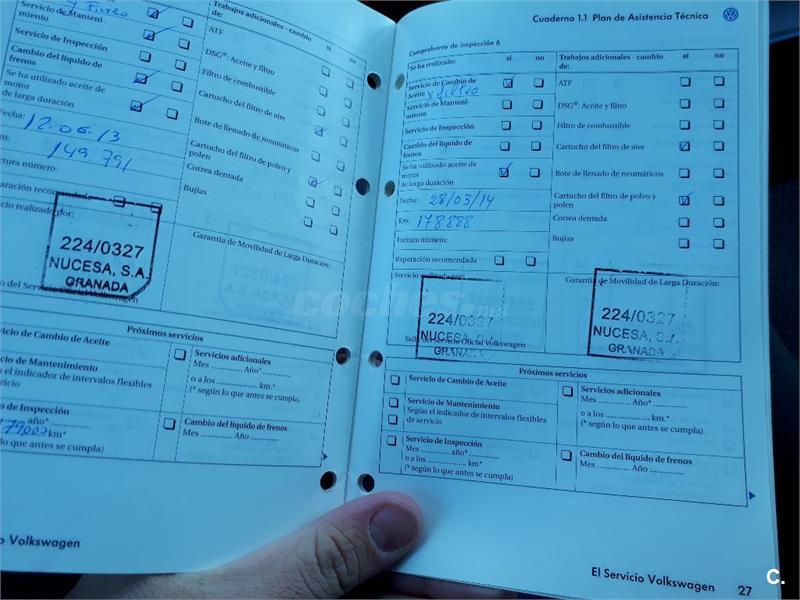 y Filtro
Servicio de Manteni-
miento
Servicio de Inspección
Cambio del líquido de
frenos
Se ha utilizado aceite de
motor
de larga duración
Fecha: 12.06.13
Km: 149.791
Factura número:
Reparación recomendada
Servicio realizado por:
224/0327
NUCESA, S.A.
GRANADA
Sello del Servicio Oficial Volkswagen
Trabajos adicionales - cambio
de:
sí no
ATF
DSG®: Aceite y filtro
Filtro de combustible
Cartucho del filtro de aire
Bote de llenado de neumáticos
Cartucho del filtro de polvo y
polen
Correa dentada
Bujías
Garantía de Movilidad de Larga Duración:
Próximos servicios
Servicio de Cambio de Aceite
Servicio de Mantenimiento
Según el indicador de intervalos flexibles
de servicio
Servicio de Inspección
año*
km*
(* según lo que antes se cumpla)
Servicios adicionales
Mes .............. Año* ..............
o a los .................... km.*
(* según lo que antes se cumpla)
Cambio del líquido de frenos
Mes .............. Año ..............
El Servicio Volkswagen
Cuaderno 1.1 Plan de Asistencia Técnica
Comprobante de inspección 6
Se ha realizado: sí no
Servicio de Cambio de
Aceite y filtro
Servicio de Manteni-
miento
Servicio de Inspección
Cambio del líquido de
frenos
Se ha utilizado aceite de
motor
de larga duración
Fecha: 28/03/14
Km: 178888
Factura número:
Reparación recomendada
Servicio realizado por:
224/0327
NUCESA, S.A.
GRANADA
Sello del Servicio Oficial Volkswagen
Trabajos adicionales - cambio
de:
sí no
ATF
DSG®: Aceite y filtro
Filtro de combustible
Cartucho del filtro de aire
Bote de llenado de neumáticos
Cartucho del filtro de polvo y
polen
Correa dentada
Bujías
Garantía de Movilidad de Larga Duración:
224/0327
NUCESA, S.A.
GRANADA
Próximos servicios
Servicio de Cambio de Aceite
Servicio de Mantenimiento
Según el indicador de intervalos flexibles
de servicio
Servicio de Inspección
Mes .............. año* ..............
o a los .................... km*
(* según lo que antes se cumpla)
Servicios adicionales
Mes .............. Año* ..............
o a los .................... km.*
(* según lo que antes se cumpla)
Cambio del líquido de frenos
Mes .............. Año ..............
El Servicio Volkswagen 27
coches.net
C.